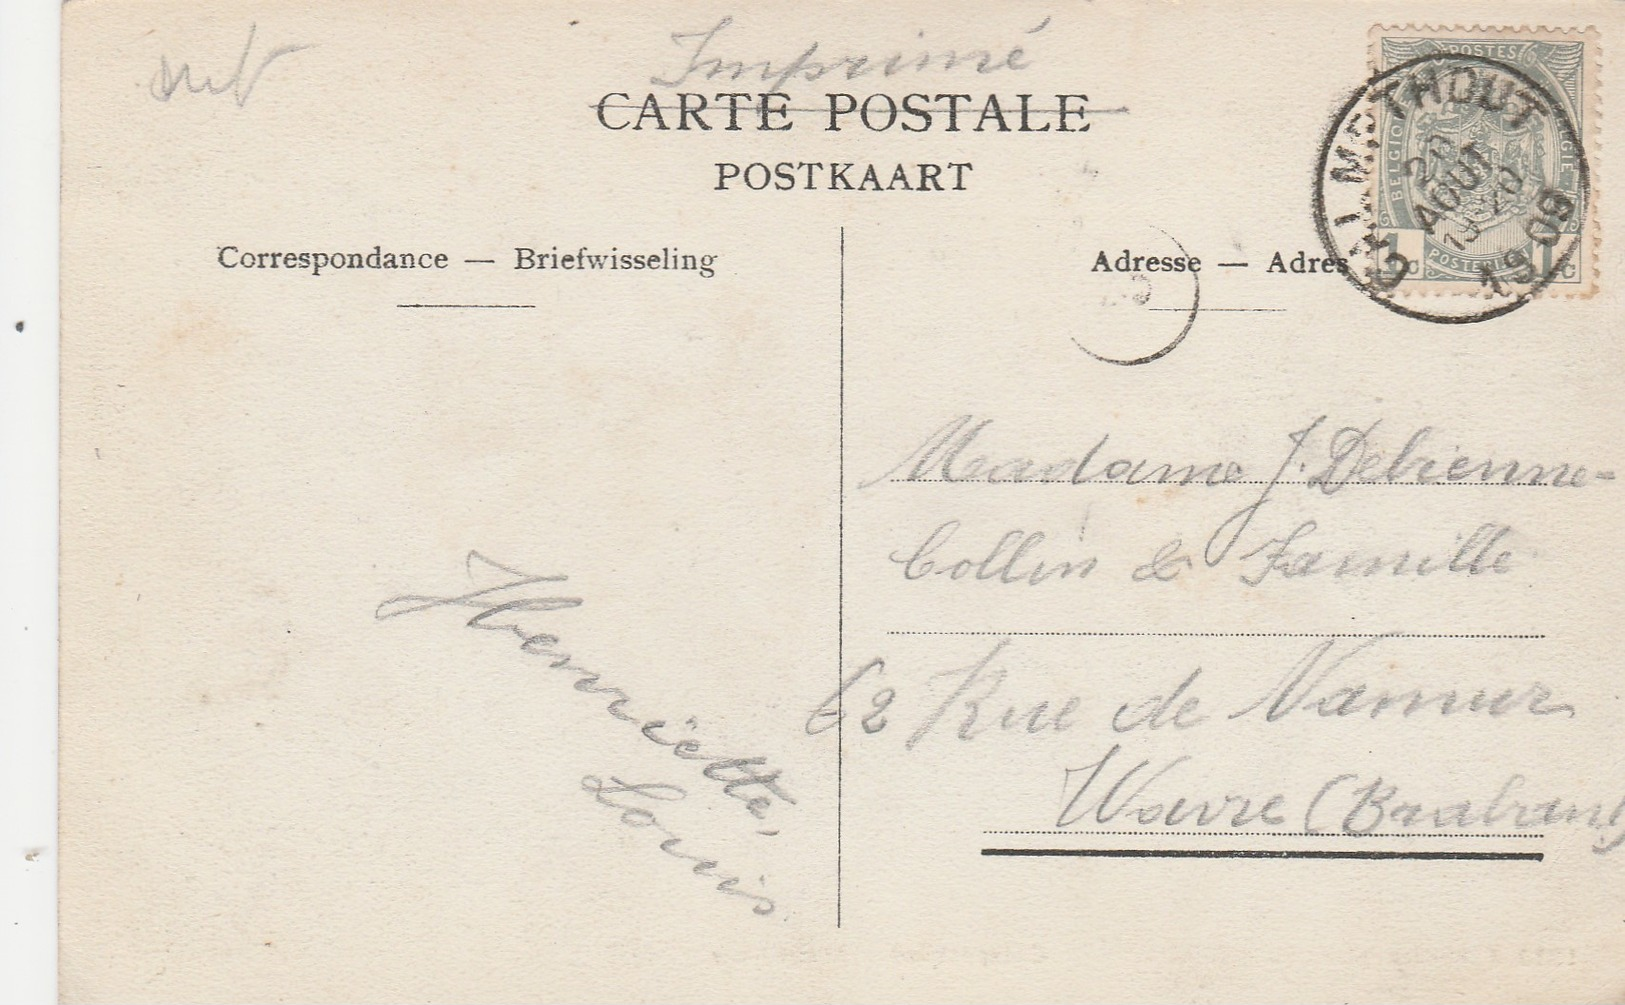 Imprimé
CARTE POSTALE
POSTKAART
POSTES
BELGIQUE
BELGIË
POSTERIJEN
1c 1c
CALMPTHOUT
20
AOUT
19-20
1909
Correspondance — Briefwisseling
Adresse — Adres
Madame J. Debienne-
Collin & Famille
62 Rue de Namur
Wavre (Brabant)
Henriette,
Louis